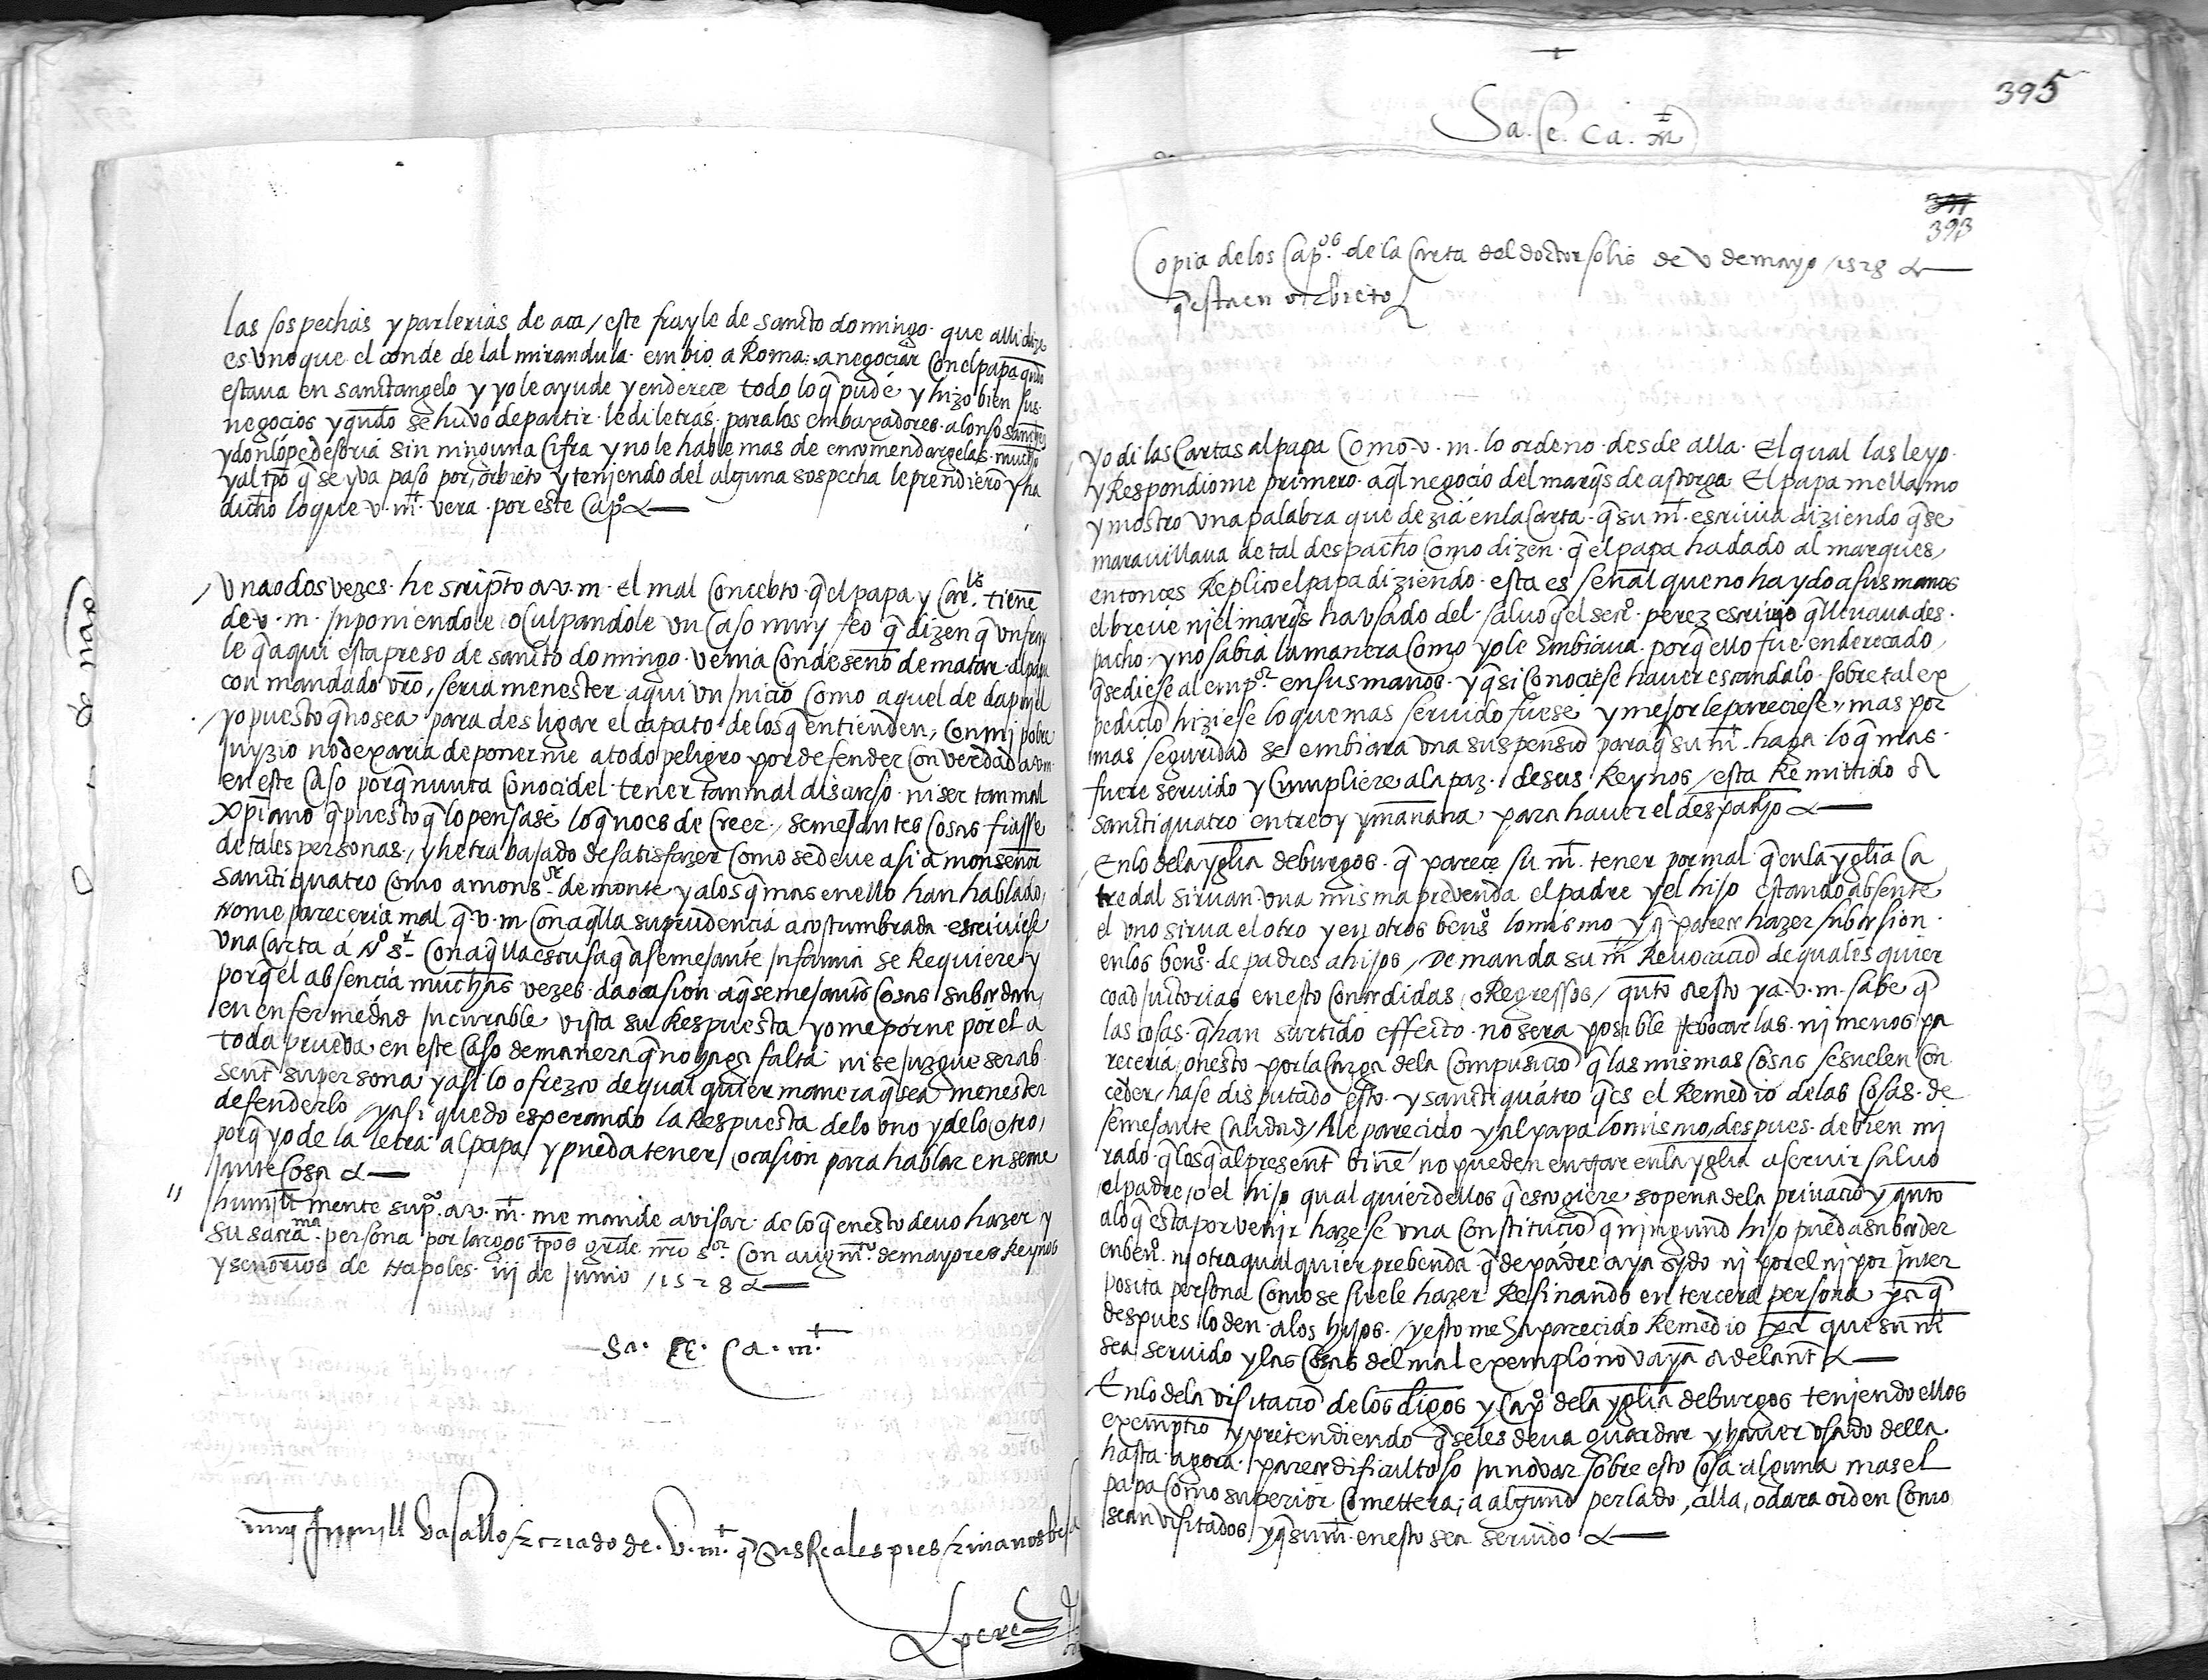 las sospechas y parlerias de aca / este frayle de sancto domingo que alli dize
es uno que el conde de lal mirandula embio a Roma a negociar con el papa qn̄do
estava en sanctangelo y yo le ayude y enderece todo lo q̄ pude y hizo bien sus
negocios y qn̄do se huvo de partir le di letras para los embaxadores alonso sanchez
y don lope de soria sin ninguna cifra y no le hable mas de encomendargelas mucho
y al tp̄o q̄ se yva paso por orbieto y teniendo del alguna sospecha le prendierō y ha
dicho lo que v. m.t vera por este Cap.o
una o dos vezes he scripto a v. m. el mal concebto q̄ el papa y Car.les tienē
de v. m. inponiendole o culpandole un caso muy feo q̄ dizen q̄ un fray
le q̄ aqui esta preso de sancto domingo venia con deseño de matar al papa
con mandado vrō, seria menester aqui un inicio como aquel de
yo puesto q̄ no sea para desligar el çapato de los q̄ entienden, con mi pobre
juyzio no dexaria de ponerme a todo peligro por defender con verdad a v. m.
en este caso porq̄ nunca conoci del tener tan mal discurso ni ser tan mal
xp̄iano q̄ puesto q̄ lo pensase lo q̄ no es de creer, semejantes cosas fiasse
de tales personas, y he trabajado de satisfazer como se deve asi a monseñor
sanctiquatro como a mons.or de monte y a los q̄ mas en ello han hablado,
no me pareceria mal q̄ v. m. con aq̄lla su prudencia acostumbrada escriviese
una carta a N.o S.r con aq̄lla escusa q̄ a semejante infamia se Requiere y
porq̄ el absencia muchas vezes da ocasion a q̄ semejantes cosas subcedan
en enfermedad incurable vista su Respuesta yo me porne por el a
toda prueva en este caso de manera q̄ no haga falta ni se juzgue ser ab
sent su persona y asi lo ofrezco de qualquier manera q̄ sea menester
defenderlo y asi quedo esperando la Respuesta de lo uno y de lo otro,
porq̄ yo de la letra al papa y pueda tener ocasion para hablar en seme
jante cosa
humilmente sup.co a v. m.t me mande avisar de lo q̄ en esto devo hazer y
su sacra.ma persona por largos tp̄os grde nrō s.or con augm.to de mayores Reynos
y señorios de Napoles iij de Junio / 1528
Sa. Ce. Ca. m.t
muy humill vasallo & criado de. V. m.t q̄ sus Reales pies & manos besa
L perez
395
Sa. Ce. Ca. m.t
393
Copia de los Cap.os de la Carta del doctor solis de v de mayo / 1528
q̄ esta en orbieto
Yo di las Cartas al papa Como v. m. lo ordeno desde alla. El qual las leyo
y Respondiome primero aq̄l negocio del marq̄s de astorga El papa me llamo
y mostro una palabra que dezia en la Carta q̄ su m.t escrivia diziendo q̄ se
maravillava de tal despacho Como dizen q̄ el papa ha dado al marques,
entonces Replico el papa diziendo esta es señal que no ha ydo a sus manos
el breve ni el marq̄s ha usado del salvo q̄ el secr.o perez escrivio q̄ llevava des
pacho y no sabia la manera Como yo le Embiava porq̄ ello fue endereçado,
q̄ se diese al emp.or en sus manos y q̄ si conociese haver escandalo sobre tal ex
pediciō hiziese lo que mas servido fuese y mejor le pareciese, mas por
mas seguridad se embiara una suspensiō para q̄ su m.t haga lo q̄ mas
fuere servido y Cumpliere a la paz desus Reynos / esta Remittido a
sanctiquatro entre oy y mañana para haver el despacho
En lo de la yglia de burgos q̄ parece su m.t tener por mal q̄ en la yglia Ca
tredal sirvan una misma prevenda el padre y el hijo estando absente
el uno sirva el otro y en otros ben.os lo mismo y q̄ parece hazer subcesion
en los ben.os de padres a hijos, Demanda su m.t Revocaciō de qualesquier
coadjutorias en esto concedidas, o Regressos, qn̄to a esto ya v. m. sabe q̄
las cosas q̄ han surtido effecto no sera posible Rebocarlas ni menos pa
receria onesto por la carga de la Composiciō q̄ las mismas cosas se suelen con
ceder, hase disputado esto y sanctiquatro q̄ es el Remedio de las cosas de
semejante calidad, Ale parecido y al papa lo mismo, despues de bien mi
rado q̄ los q̄ al present tienē no pueden entrar en la yglia a servir salvo
el padre, o el hijo qualquier dellos q̄ escogiere so pena de la privaciō y qn̄to
a lo q̄ esta por venir hazese una Constituciō q̄ ningund hijo pueda subceder
en ben.o ni otra qualquier prebenda q̄ de padre aya sydo ni por el ni por Inter
posita persona Como se suele hazer Resinando en tercera persona pa q̄
despues lo den a los hijos, y esto me ha parecido Remedio pa que su m.t
sea servido y las cosas del mal exemplo no vayā adelant
En lo de la visitaciō de los clīgos y Cap.o de la yglia de burgos teniendo ellos
exemptiō y pretendiendo q̄ se les deva guardar y haver usado della
hasta agora parece dificultoso Innovar sobre esto cosa alguna mas el
papa Como superior Cometera, a algund perlado, alla, o dara orden Como
sean visitados y q̄ su m.t en esto sea servido